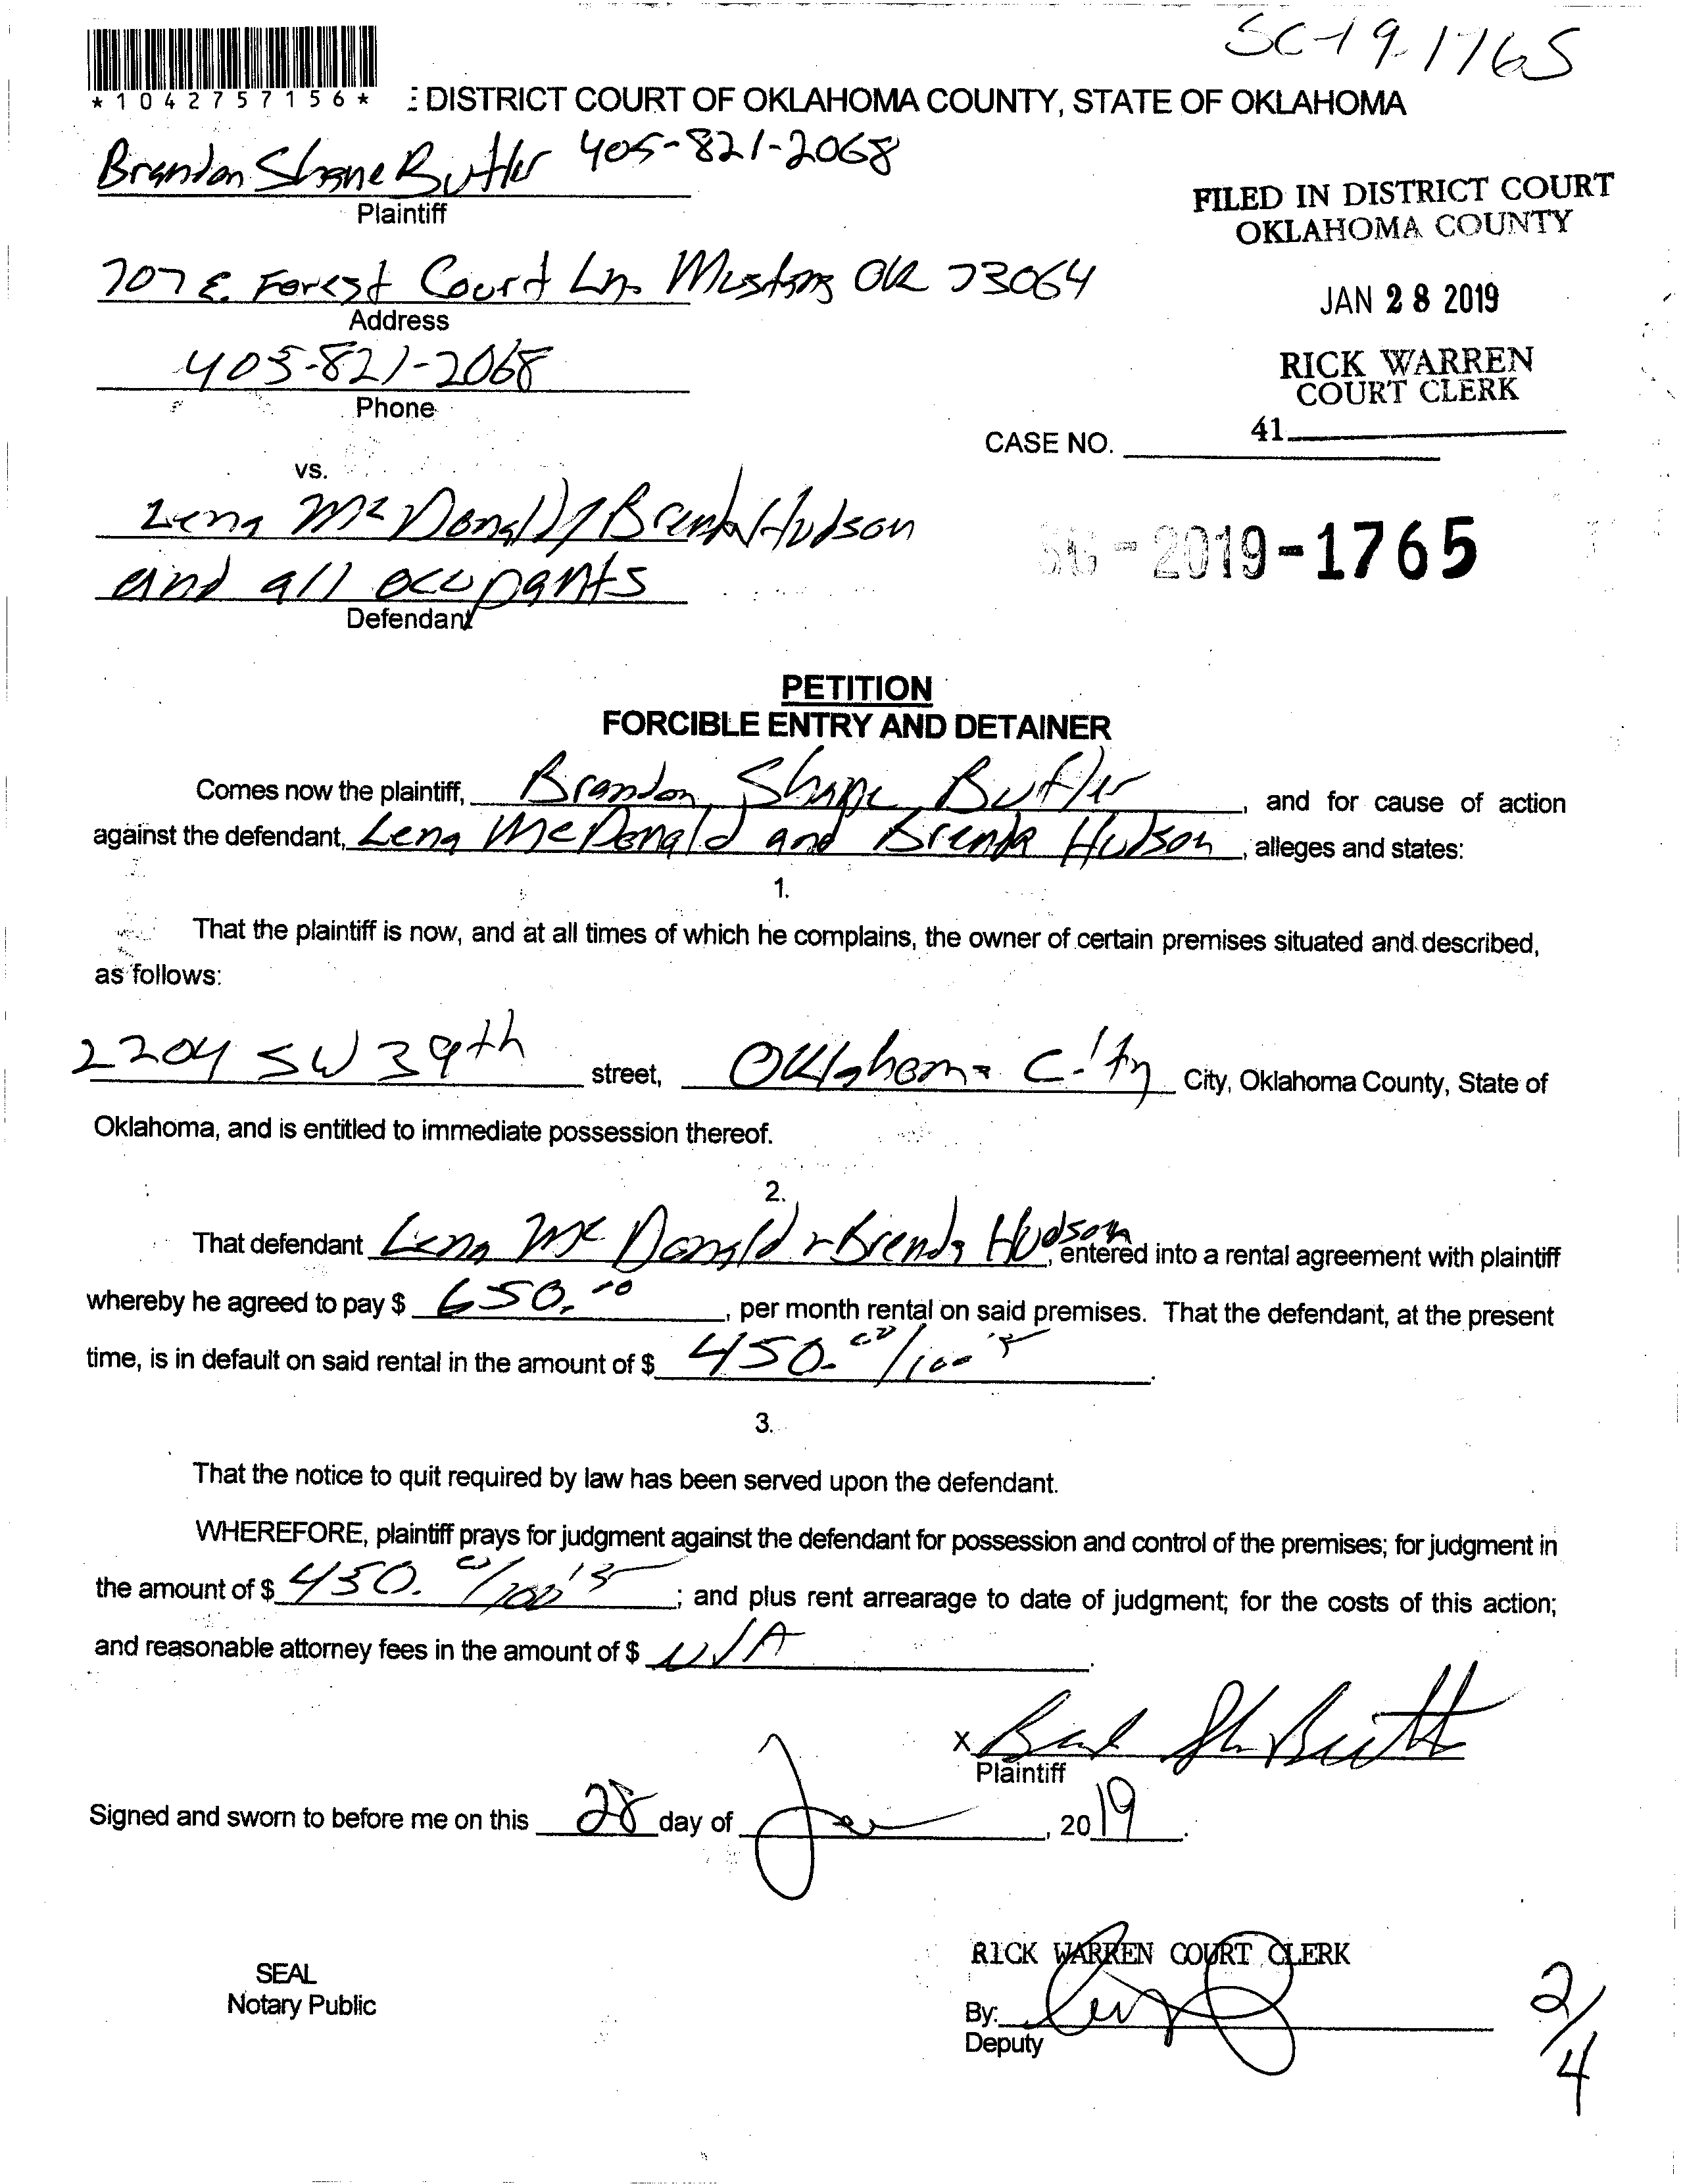 SC-19-1765
*1042757156*
: DISTRICT COURT OF OKLAHOMA COUNTY, STATE OF OKLAHOMA
Brandon Shane Butler 405-821-2068
Plaintiff
FILED IN DISTRICT COURT
OKLAHOMA COUNTY
707 E. Forest Court Ln. Mustang OK 73064
Address
JAN 28 2019
405-821-2068
Phone
RICK WARREN
COURT CLERK
41
CASE NO.
vs.
Lena McDonald / Brenda Hudson
and all occupants
Defendant
SC-2019-1765
PETITION
FORCIBLE ENTRY AND DETAINER
Comes now the plaintiff, Brandon Shane Butler, and for cause of action
against the defendant, Lena McDonald and Brenda Hudson, alleges and states:
1.
That the plaintiff is now, and at all times of which he complains, the owner of certain premises situated and described,
as follows:
2204 SW 39th street, Oklahoma City City, Oklahoma County, State of
Oklahoma, and is entitled to immediate possession thereof.
2.
That defendant Lena McDonald + Brenda Hudson, entered into a rental agreement with plaintiff
whereby he agreed to pay $ 650.00, per month rental on said premises. That the defendant, at the present
time, is in default on said rental in the amount of $ 450.00/100's.
3.
That the notice to quit required by law has been served upon the defendant.
WHEREFORE, plaintiff prays for judgment against the defendant for possession and control of the premises; for judgment in
the amount of $ 450. 00/100's; and plus rent arrearage to date of judgment; for the costs of this action;
and reasonable attorney fees in the amount of $ N/A.
X
Plaintiff
Signed and sworn to before me on this 28 day of Jan, 2019.
RICK WARREN COURT CLERK
SEAL
Notary Public
By:
Deputy
2/4